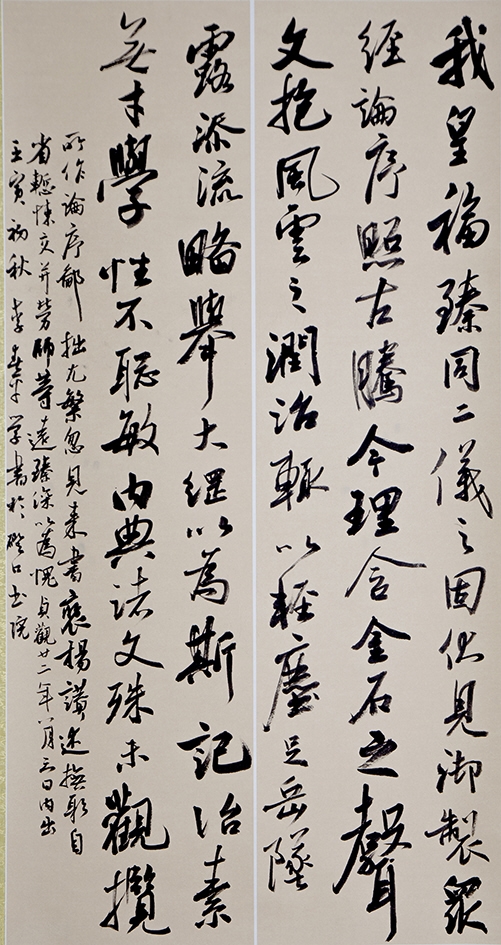 我皇福臻同二儀之固伏見御製眾
經論序照古騰今理含金石之聲
文抱風雲之潤治輒以輕塵足岳墜
露添流略舉大綱以為斯記治素
無才學性不聰敏內典諸文殊未觀攬
所作論序鄙拙尤繁忽見來書褒揚讚述撫躬自
省慙悚交并勞師等遠臻深以為愧貞觀廿二年八月三日內出
壬寅初秋李學書於口書院